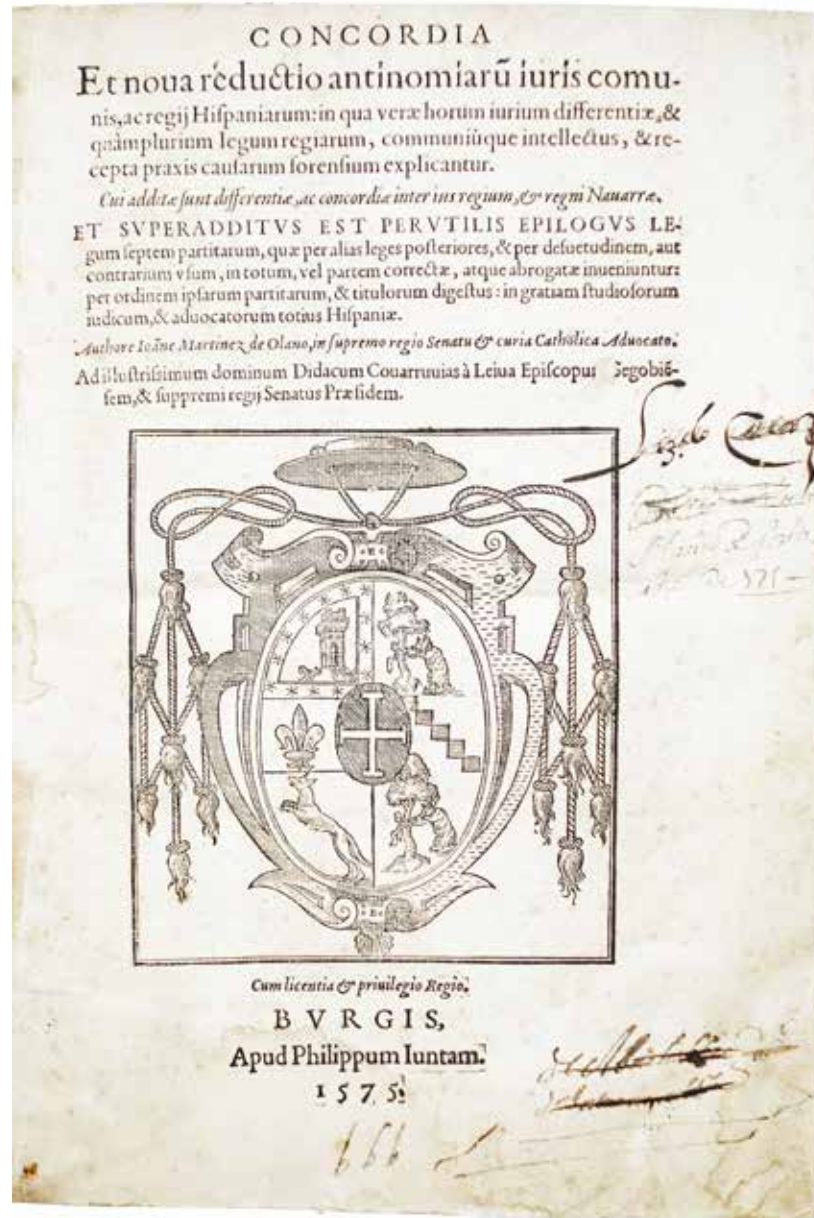 CONCORDIA
Et noua reductio antinomiarũ iuris comu-
nis, ac regij Hiſpaniarum: in qua veræ horum iurium differentiæ, &
quàmplurium legum regiarum, communiũque intellectus, & re-
cepta praxis cauſarum forenſium explicantur.
Cui additæ ſunt differentiæ, ac concordiæ inter ius regium, & regni Nauarræ.
ET SVPERADDITVS EST PERVTILIS EPILOGVS LE-
gum ſeptem partitarum, quæ per alias leges poſteriores, & per deſuetudinem, aut
contrarium vſum, in totum, vel partem correctæ, atque abrogatæ inueniuntur:
per ordinem ipſarum partitarum, & titulorum digeſtus: in gratiam ſtudioſorum
iudicum, & aduocatorum totius Hiſpaniæ.
Authore Ioãne Martinez de Olano, in ſupremo regio Senatu & curia Catholica Aduocato.
Ad illuſtriſsimum dominum Didacum Couarruuias à Leiua Epiſcopum Segobiẽ-
ſem, & ſuppremi regij Senatus Præſidem.
Cum licentia & priuilegio Regio.
BVRGIS,
Apud Philippum Iuntam.
1575.
666